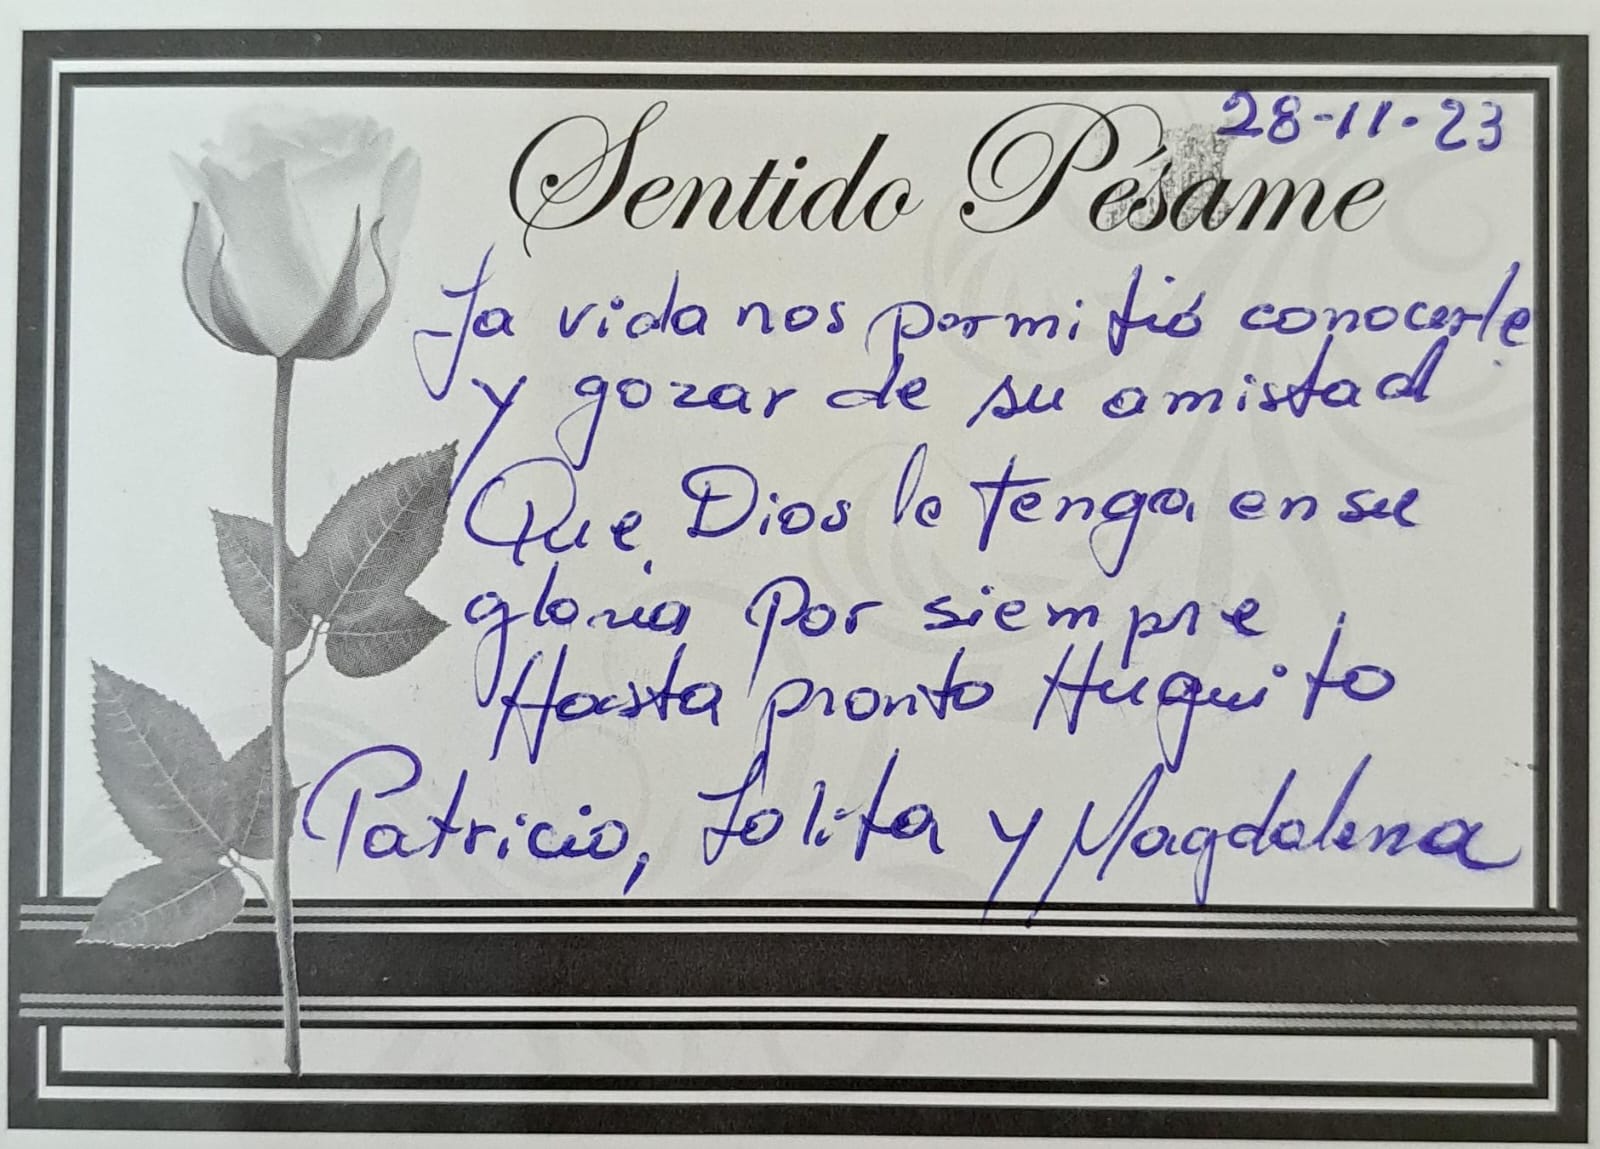 28-11-23
Sentido Pésame
La vida nos permitió conocerle
y gozar de su amistad
Que Dios le tenga en su
gloria por siempre
Hasta pronto Huguito
Patricio, Lolita y Magdalena